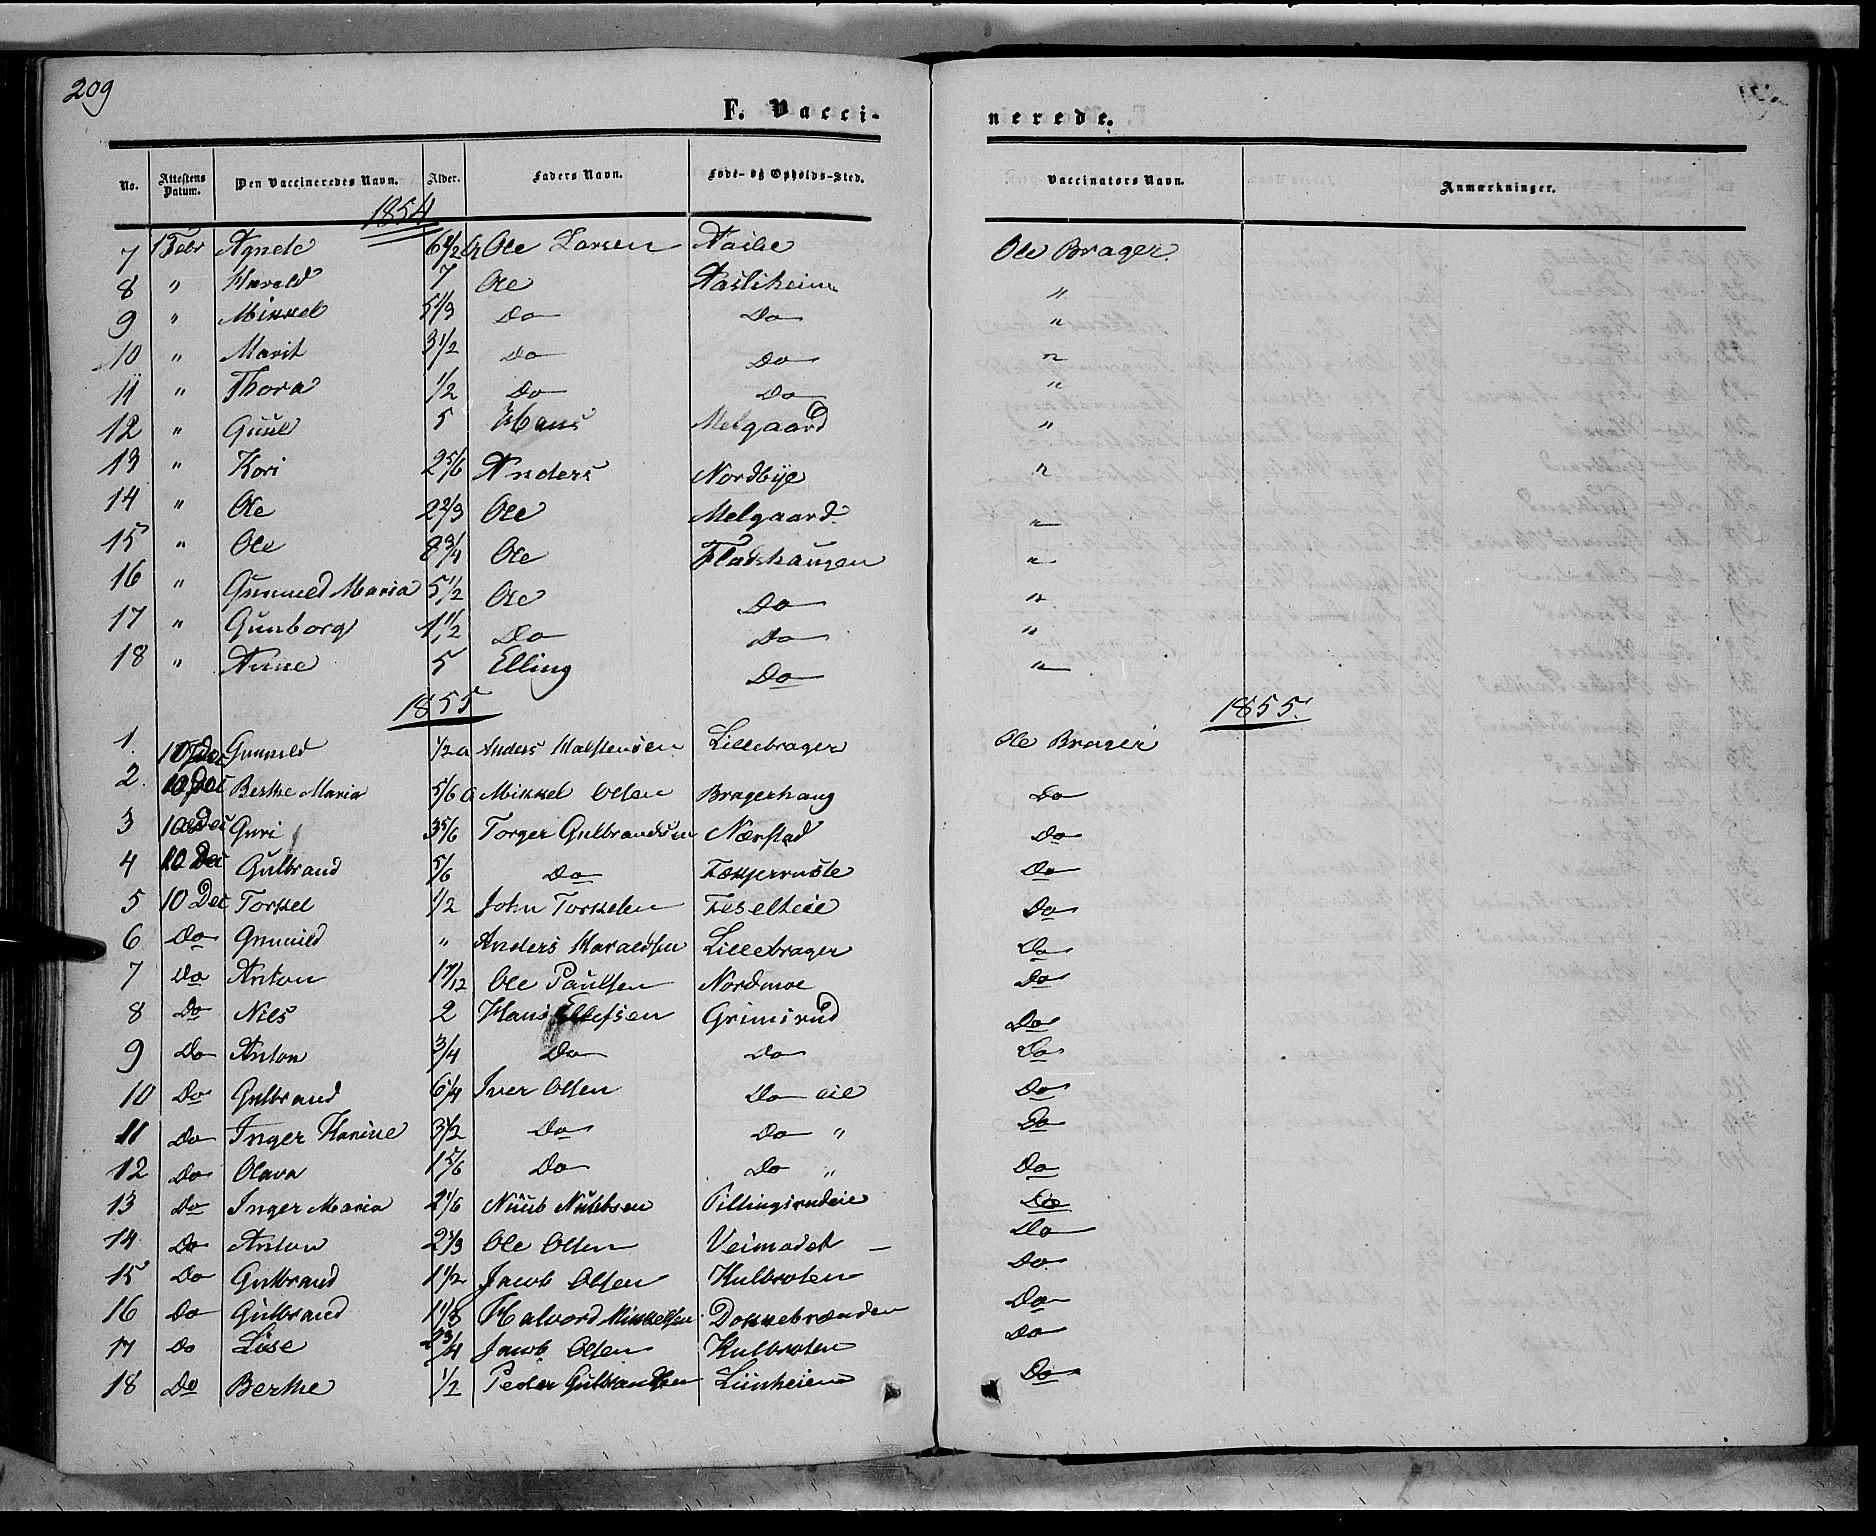 209
F. Vacci-
nerede.
No. Attestens Datum. Den Vaccineredes Navn. Alder. Faders Navn. Føde- og Opholds-Sted. Vaccinators Navn. Anmærkninger.
1854
7 1 Febr Agnete 6 1/2 Ole Larsen Ole Brager.
8 " Harald 7 Ole "
9 " Mikkel 5 1/3 Do Do "
10 " Marit 3 1/2 Do Do "
11 " Thora 1/2 Do Do "
12 " 5 Hans Melgaard "
13 " Kari 2 5/6 Anders Nordbye "
14 " Ole 2 2/3 Ole Melgaard "
15 " Ole 8 3/4 Ole "
16 " Gunild Maria 5 1/2 Ole Do "
17 " Gunborg 1 1/2 Do Do "
18 " Anne 5 Elling Do "
1855 1855.
1. 10 Dec Gunild 1/2 a Anders Lillebrager Ole Brager
2. 10 Dec Berthe Maria 5/6 a Mikkel Olsen Bragerhaug Do
3 10 Dec Guri 3 5/6 Torger Gulbrandsen Nærstad Do
4 10 Dec Gulbrand 5/6 Do Do
5 10 Dec Torkel 1/2 John Torkelsen Do
6 Do Gunild " Anders Haraldsen Lillebrager Do
7 Do Anton Ole Paulsen Nordmoe Do
8 Do Niels 2 Hans Ellefsen Grimsrud Do
9 Do Anton 3/4 Do Do Do
10 Do Gulbrand 6 1/4 Iver Olsen Do eie Do
11 Do Inger Karine 3 1/2 Do Do " Do
12 Do Olava 1 5/6 Do Do " Do
13 Do Inger Maria 2 1/6 Nuub Nubbsen Pillingsrudeie Do
14 Do Anton 2 1/3 Ole Olsen Veimodet – Do
15 Do Gulbrand 1 1/2 Jacob Olsen Kulbroten Do
16 Do Gulbrand 1 1/3 Halvord Mikkelsen Dokkebrænden Do
17 Do Lise 2 3/4 Jacob Olsen Kulbroten Do
18 Do Berthe 1/2 Peder Gulbrandsen Do